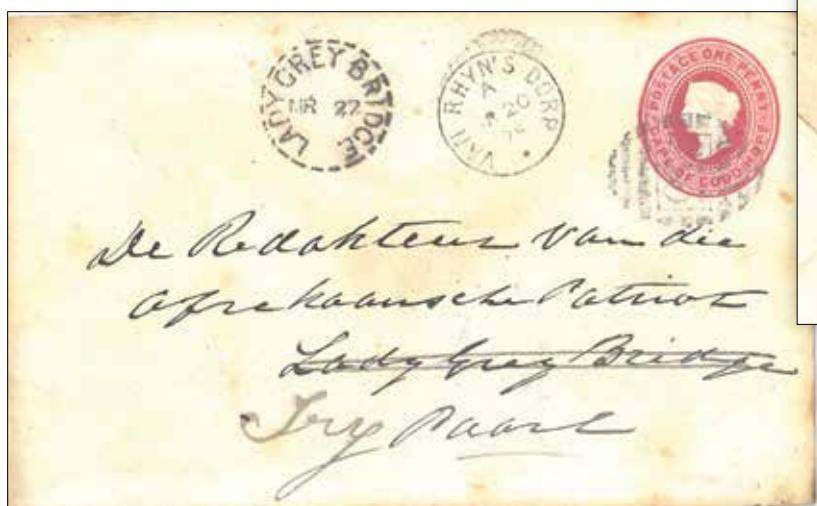 LADY GREY BRIDGE
MR 22
VAN RHYN'S DORP
A
20
POSTAGE ONE PENNY
CAPE OF GOOD HOPE
De Redakteur Van die
Afrikaansche Patriot
Lady Grey Bridge
Try Paarl